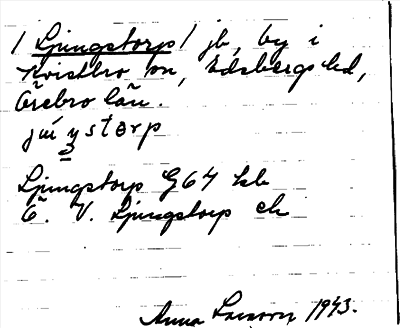 / Ljungstorp / jb, by i
Kvistbro sn, Edsbergs hd,
Örebro län.
Ljungstorp G64 kb
Ö. V. Ljungstorp ek
Anna Larsson 1943.